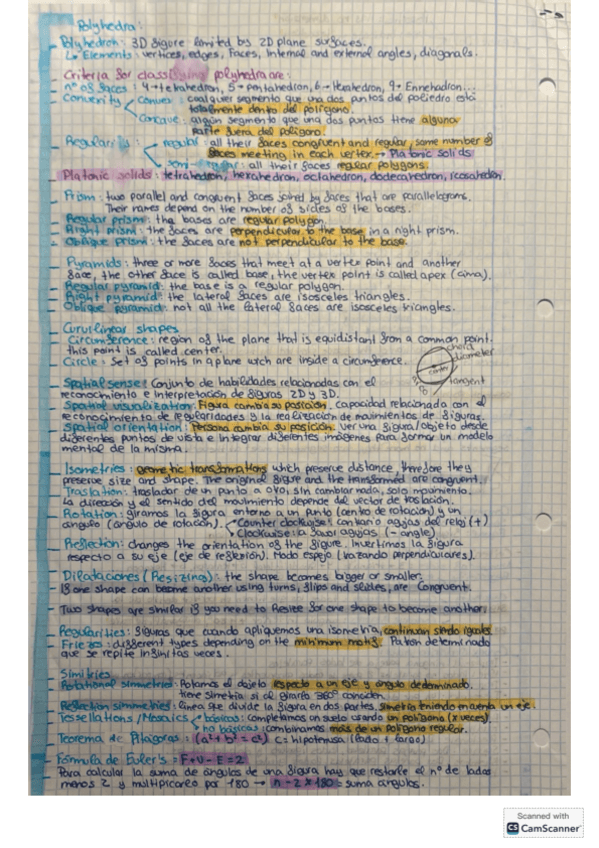 Polyhedra:
Polyhedron: 3D figure limited by 2D plane surfaces.
↳ Elements: vertices, edges, faces, internal and external angles, diagonals.
Criteria for classifying polyhedra are:
- nº of faces: 4→tetrahedron, 5→pentahedron, 6→Hexahedron, 9→Ennehedron...
- Convexity Convex: cualquier segmento que una dos puntos del poliedro está
totalmente dentro del polígono.
Concave: algún segmento que una dos puntos tiene alguna
parte fuera del polígono.
- Regularity: regular: all their faces congruent and regular, same number of
faces meeting in each vertex → Platonic solids
semi-regular: all their faces regular polygons.
Platonic solids: tetrahedron, hexahedron, octahedron, dodecahedron, icosahedron.
- Prism: two parallel and congruent faces joined by faces that are parallelograms.
Their names depend on the number of sides of the bases.
- Regular prism: the bases are regular polygon.
- Right prism: the faces are perpendicular to the base in a right prism.
- Oblique prism: the faces are not perpendicular to the base.
- Pyramids: three or more faces that meet at a vertex point and another
face, the other face is called base, the vertex point is called apex (cima).
- Regular pyramid: the base is a regular polygon.
- Right pyramid: the lateral faces are isosceles triangles.
- Oblique pyramid: not all the lateral faces are isosceles triangles.
Curvilinear shapes
- Circumference: region of the plane that is equidistant from a common point.
this point is called center.
- Circle: set of points in a plane wich are inside a circumference.
chord
diameter
center
tangent
- Spatial sense: Conjunto de habilidades relacionadas con el
reconocimiento e interpretación de figuras 2D y 3D.
- Spatial visualization: Figura cambia su posición. capacidad relacionada con el
reconocimiento de regularidades y la realización de movimientos de figuras.
- Spatial orientation: Persona cambia su posición. ver una figura/objeto desde
diferentes puntos de vista e integrar diferentes imágenes para formar un modelo
mental de la misma.
- Isometries: geometric transformations which preserve distance, therefore they
preserve size and shape. The original figure and the transformed are congruent.
- Traslation: trasladar de un punto a otro, sin cambiar nada, solo movimiento.
La dirección y el sentido del movimiento depende del vector de traslación.
- Rotation: giramos la figura entorno a un punto (centro de rotación) y un
ángulo (ángulo de rotación). Counter clockwise: contrario agujas del reloj (+)
Clockwise: a favor agujas (- angle)
- Reflection: changes the orientation of the figure. Invertimos la figura
respecto a su eje (eje de reflexión). Modo espejo (trazando perpendiculares).
- Dilataciones (Resizing): the shape becomes bigger or smaller.
- If one shape can become another using turns, flips and slides, are Congruent.
- Two shapes are similar if you need to Resize for one shape to become another.
- Regularities: figuras que cuando apliquemos una isometría, continúan siendo iguales.
- Friezes: different types depending on the minimum motif. Patrón determinado
que se repite infinitas veces.
- Rotational simmetries: Rotamos el objeto respecto a un eje y ángulo determinado.
tiene simetría si al girarlo 360º coinciden.
- Reflection simmetries: línea que divide la figura en dos partes, simetría teniendo en cuenta un eje.
- Tessellations / Mosaics básicos: completamos un suelo usando un polígono (x veces).
no básicos: combinamos más de un polígono regular.
- Teorema de Pitágoras: (a² + b² = c²) c = hipotenusa (lado + largo)
- Fórmula de Euler's = F+V-E=2
- Para calcular la suma de ángulos de una figura hay que restarle el nº de lados
menos 2 y multiplicarlo por 180 → n-2×180 = suma ángulos.
Scanned with
CS CamScanner